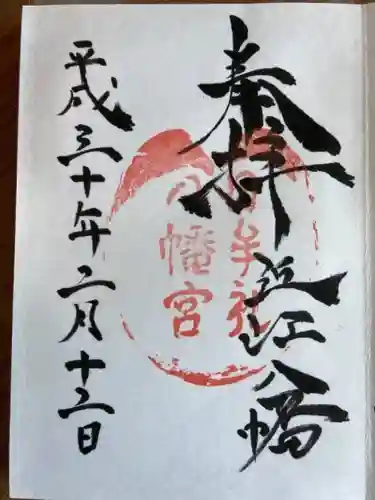 奉拝 近江八幡
日牟禮
八幡宮
平成三十年二月十二日